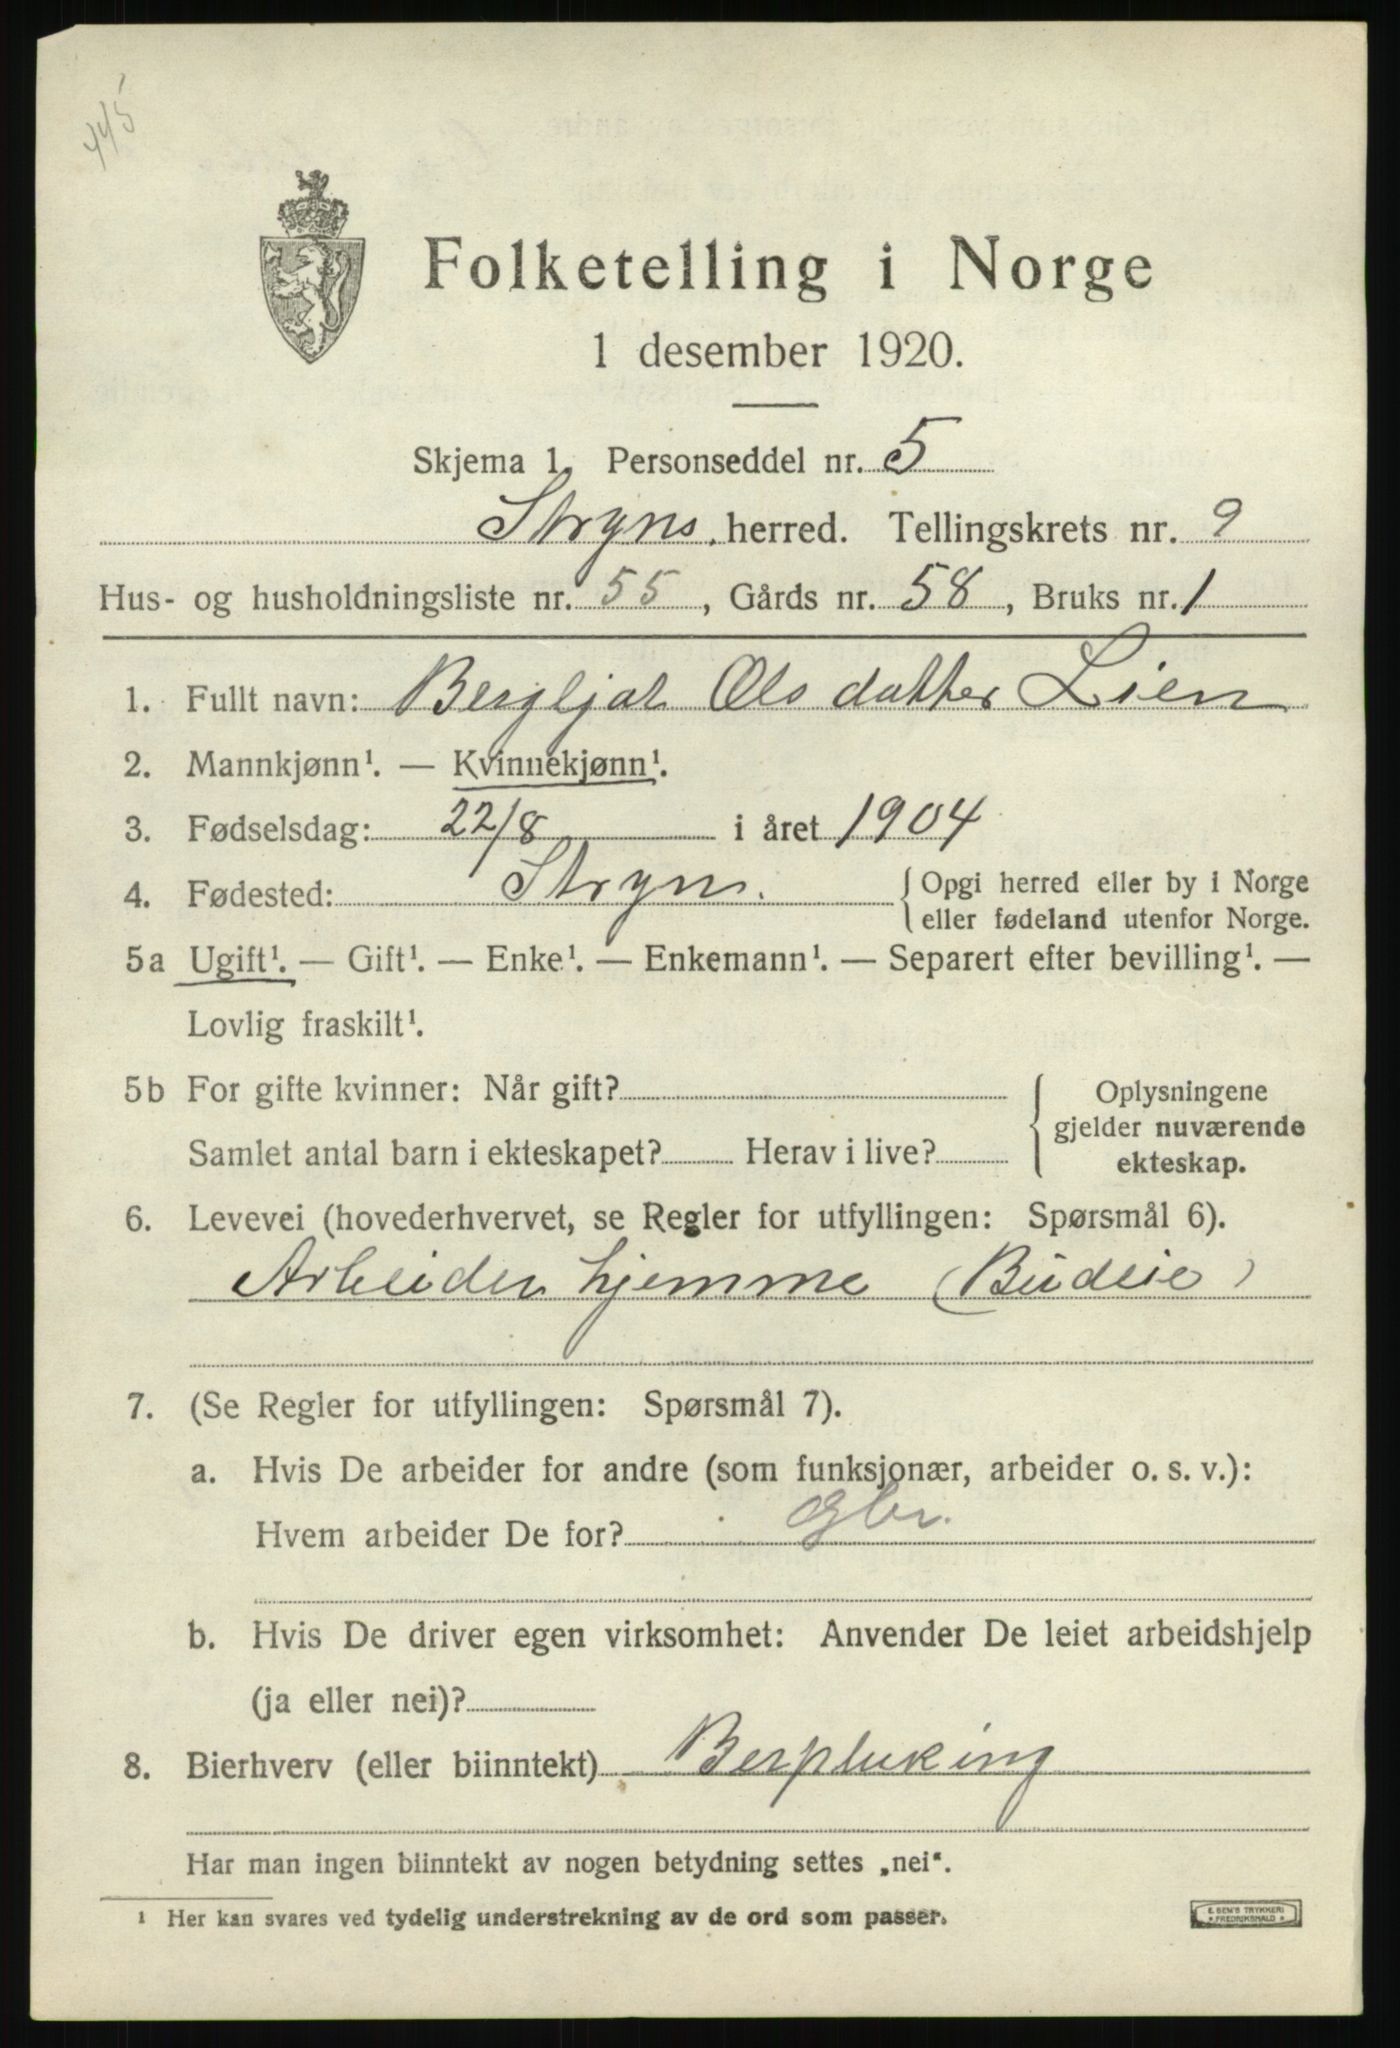 445
Folketelling i Norge
1 desember 1920.
Skjema 1. Personseddel nr. 5
Stryns herred. Tellingskrets nr. 9
Hus- og husholdningsliste nr. 55, Gårds nr. 58, Bruks nr. 1
1. Fullt navn: Bergljot Olsdatter Lien
2. Mannkjønn¹. — Kvinnekjønn¹.
3. Fødselsdag: 22/8 i året 1904
4. Fødested: Stryn. { Opgi herred eller by i Norge
eller fødeland utenfor Norge.
5a Ugift¹. — Gift¹. — Enke¹. — Enkemann¹. — Separert efter bevilling¹. —
Lovlig fraskilt¹.
5b For gifte kvinner: Når gift? { Oplysningene
gjelder nuværende
Samlet antal barn i ekteskapet? Herav i live? ekteskap.
6. Levevei (hovederhvervet, se Regler for utfyllingen: Spørsmål 6).
Arbeider hjemme (Budeie)
7. (Se Regler for utfyllingen: Spørsmål 7).
a. Hvis De arbeider for andre (som funksjonær, arbeider o. s. v.):
Hvem arbeider De for? gbr.
b. Hvis De driver egen virksomhet: Anvender De leiet arbeidshjelp
(ja eller nei)?
8. Bierhverv (eller biinntekt) Berpluking
Har man ingen biinntekt av nogen betydning settes „nei“.
¹ Her kan svares ved tydelig understrekning av de ord som passer.
E. SEM'S TRYKKERI
FREDRIKSHALD